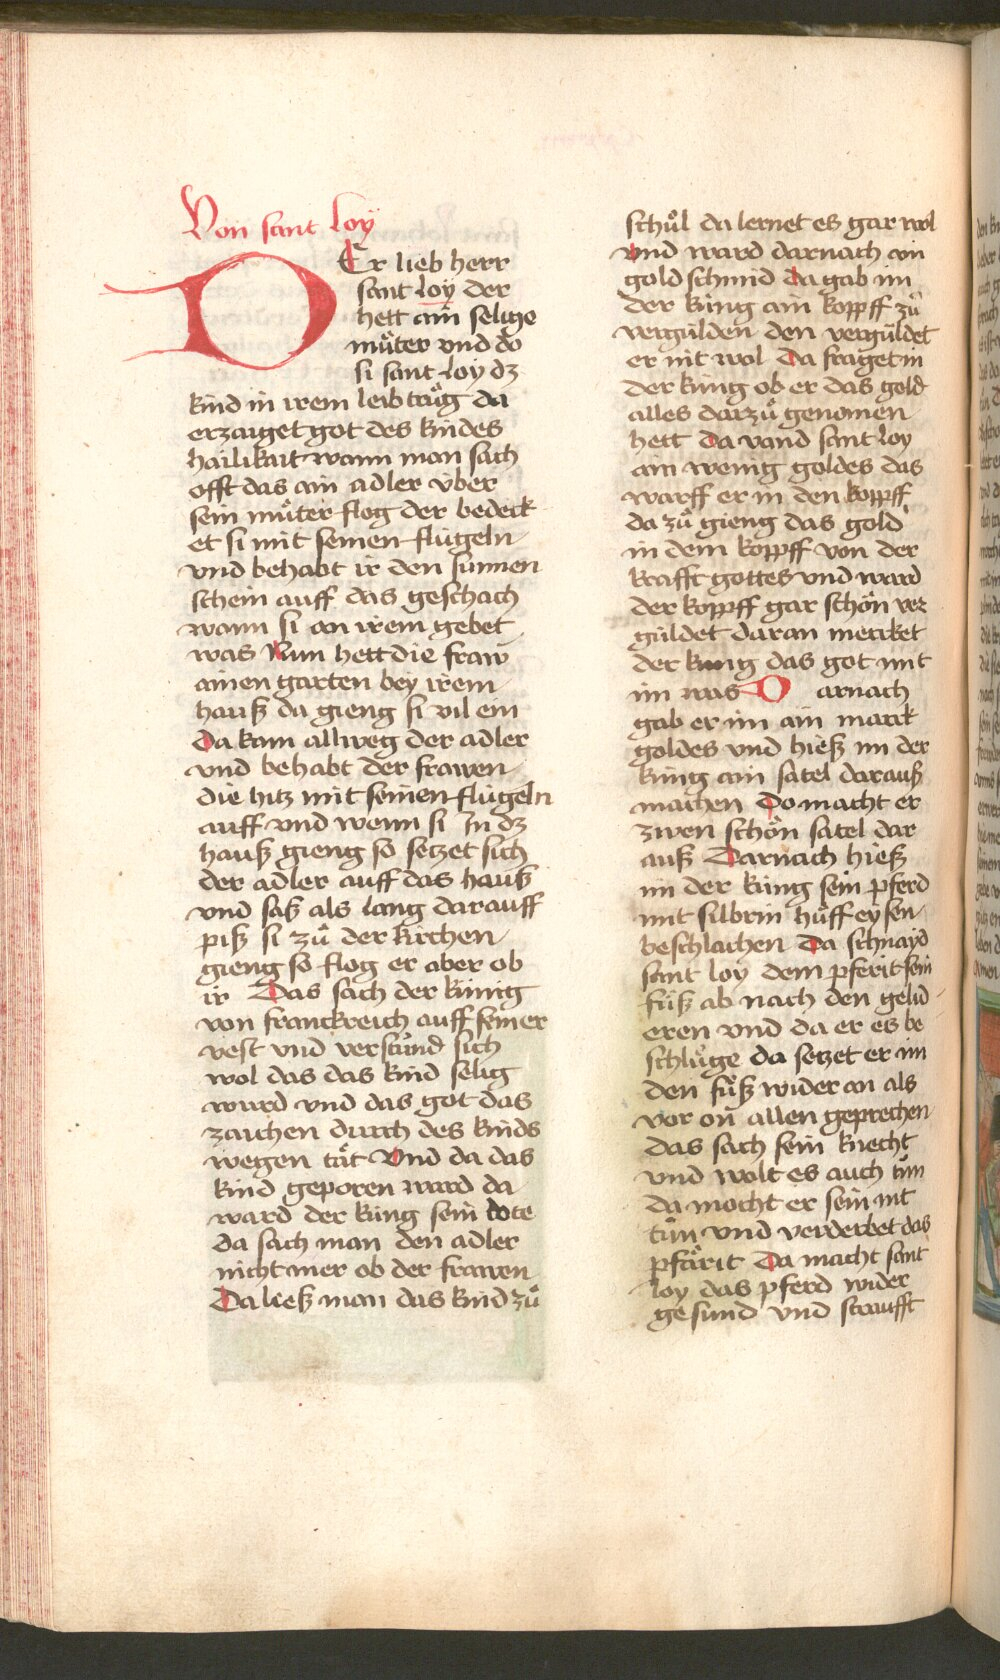 Von sant Loy
DEr lieb herr
sant Loy der
hett ain selige
můter vnd do
si sant Loy dz
kind in irem leib trůg da
erzaiget got des kindes
hailikait wann man sach
offt das ain adler vͤber
sein můter flog der bedeck
et si mit seinen flügeln
vnd behabt ir den sunnen
schein auff das geschach
wann si an irem gebet
was Nun hett die fraw
ainen garten bey irem
hauß da gieng si vil ein
Da kam allweg der adler
vnd behabt der frawen
die hitz mit seinen flügeln
auff vnd wenn si In dz
hauß gieng so setzet sich
der adler auff das hauß
vnd saß als lang darauff
piß si zů der kirchen
gieng so flog er aber ob
ir Das sach der künig
von franckreich auff seiner
vest vnd verstůnd sich
wol das das kind selig
wurd vnd das got das
zaichen durch des kinds
wegen tät Vnd da das
kind geporen ward da
ward der küng sein dote
da sach man den adler
nicht mer ob der frawen
Da ließ man das kind zů
schůl da lernet es gar wol
vnd ward darnach ain
gold schmid da gab im
der küng ain koppff zů
vergülden den vergüldet
er nit wol Da fraget in
der küng ob er das gold
alles darzů genomen
hett Da vand sant Loy
ain wenig goldes das
warff er in den koppff
da zů gieng das gold
in dem koppff von der
krafft gottes vnd ward
der koppff gar schön ver
güldet daran mercket
der kung das got mit
im was Darnach
gab er im ain marck
goldes vnd hieß im der
küng ain satel darauß
machen Do macht er
zwen schön satel dar
auß Darnach hieß
im der küng sein pferd
mit silbrin hůff eysen
beschlachen Da schnayd
sant loy dem pferit sein
fůß ab nach den gelid
eren vnd da er es be
schlůge da setzet er im
den fůß wider an als
vor on allen geprechen
das sach sein knecht
vnd wolt es auch tůn
da mocht er sein nit
tůn vnd verderbet das
pfärit Da macht sant
loy das pferd wider
gesund vnd straufft